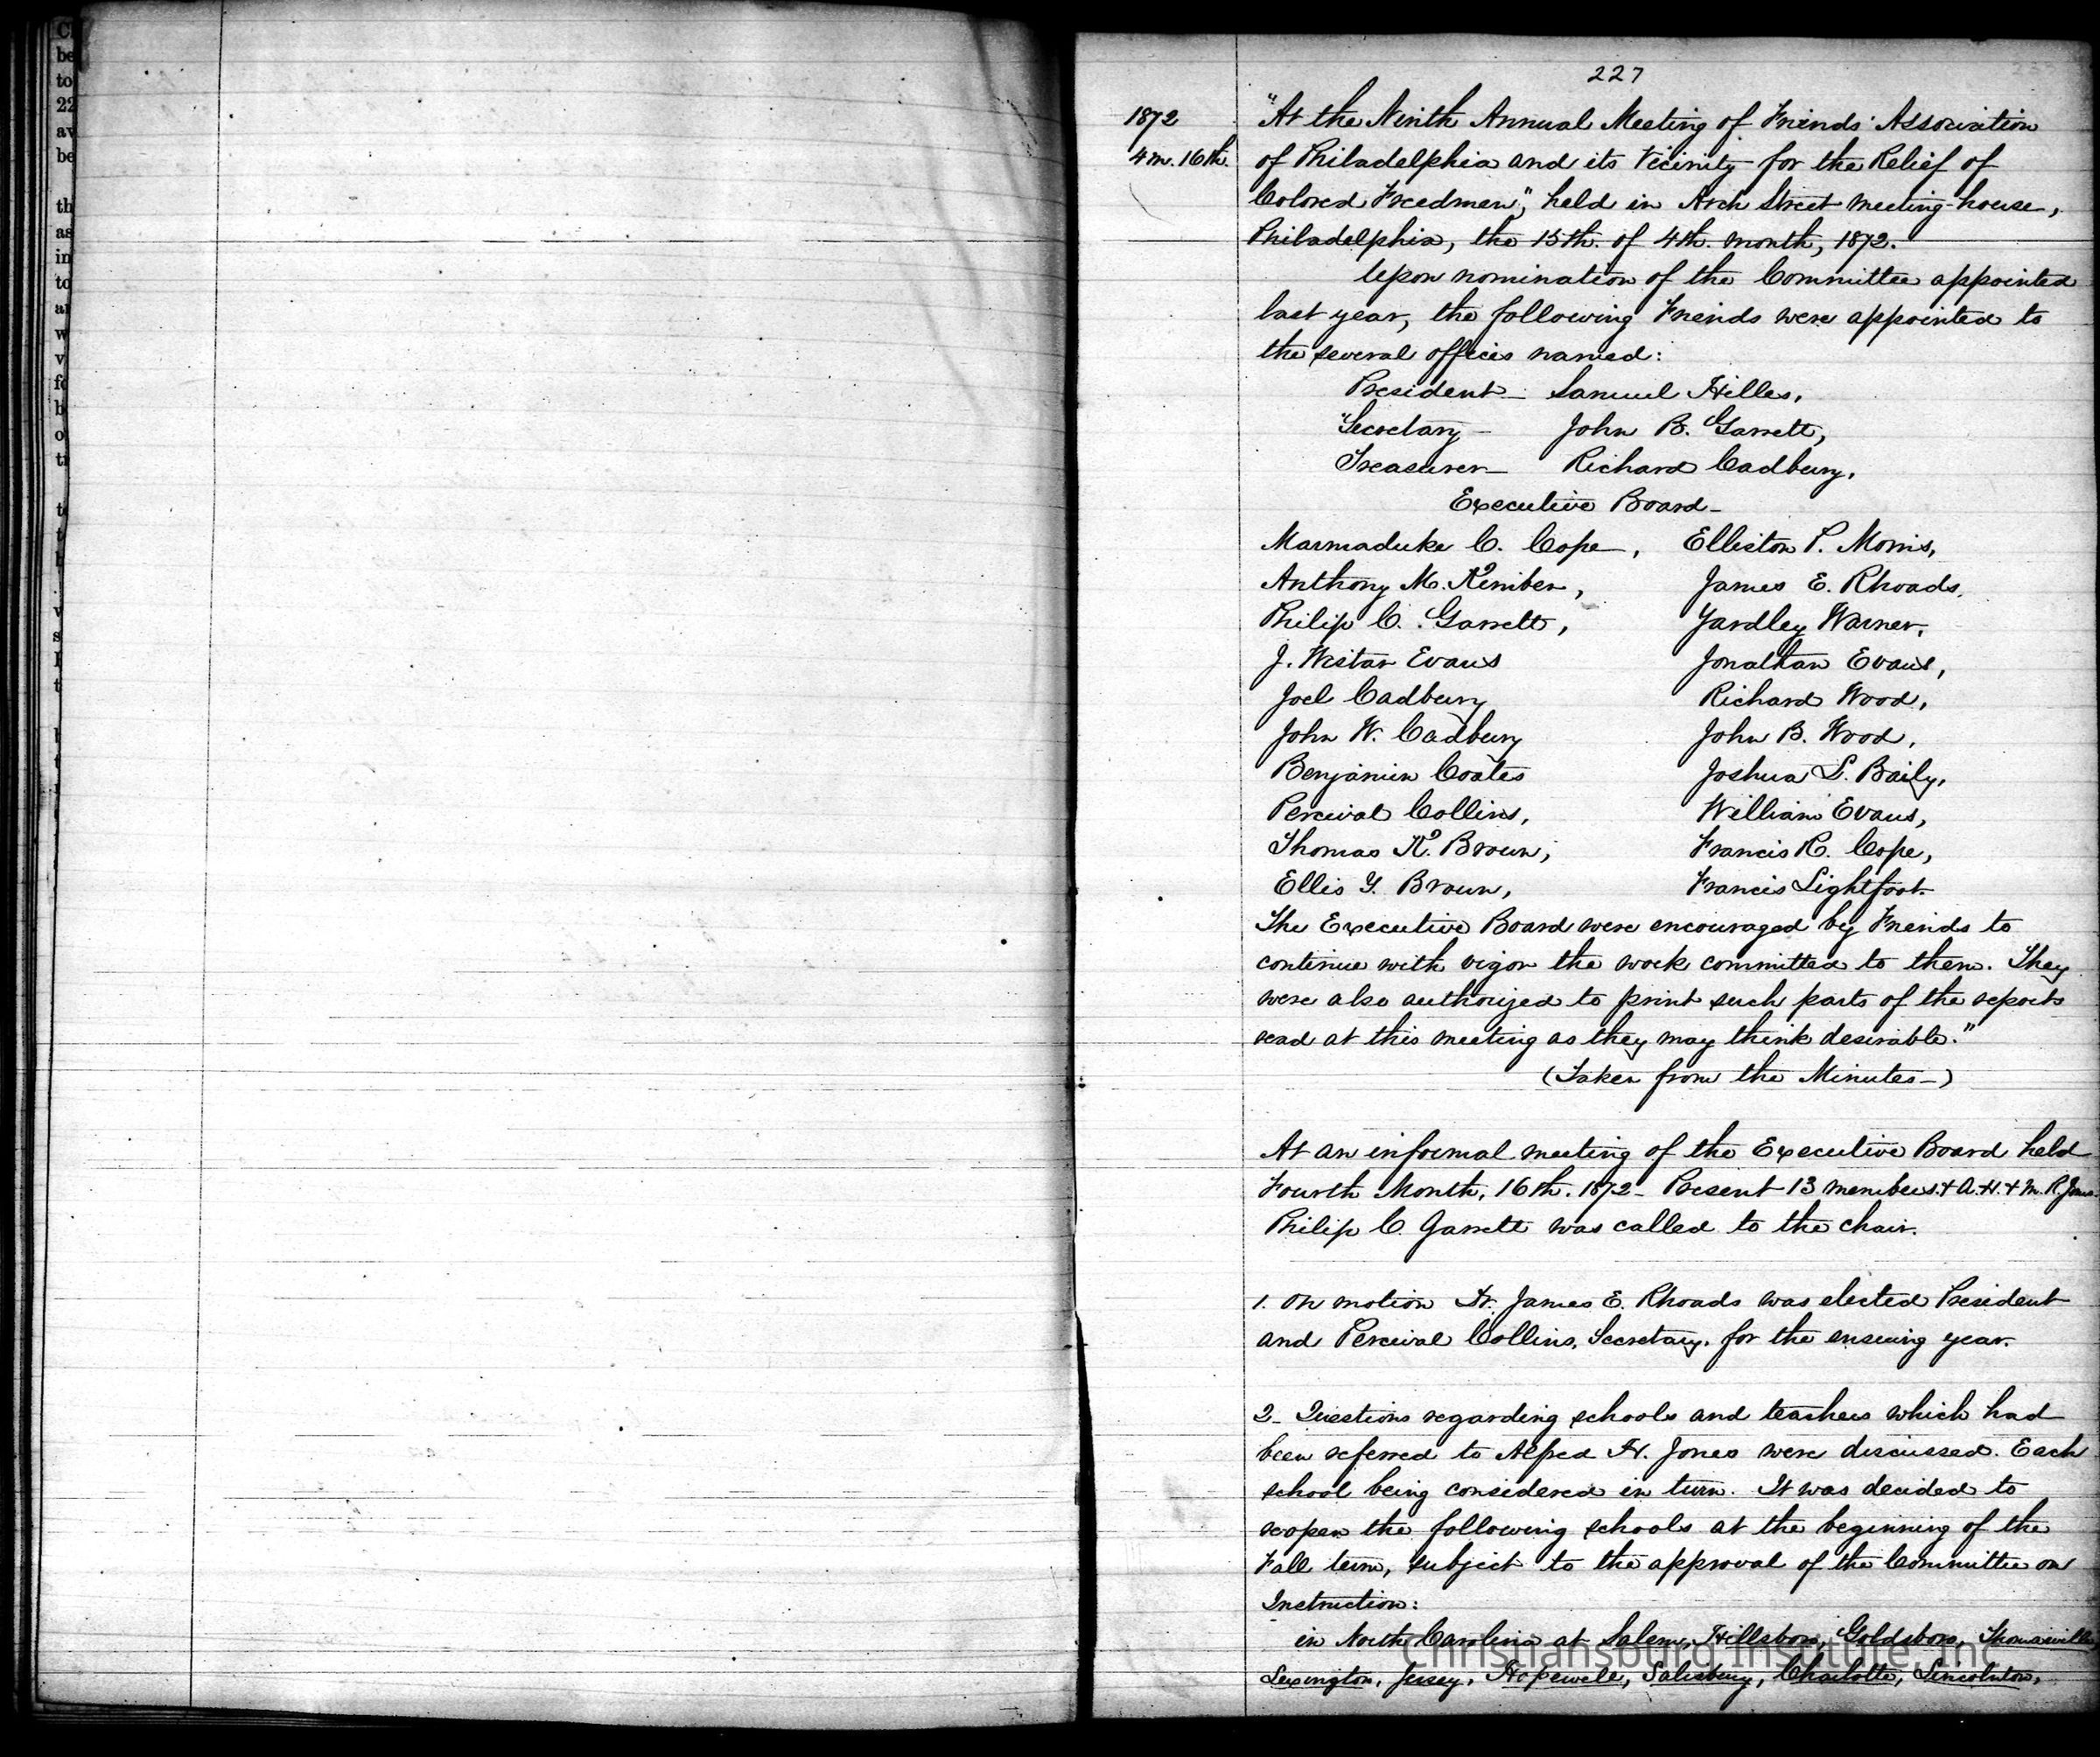 C
be
to
22
av
be
th
as
in
to
w
v
227
1872
4 m. 16th.
"At the Ninth Annual Meeting of Friends' Association
of Philadelphia and its Vicinity for the Relief of
Colored Freedmen", held in Arch Street meeting-house,
Philadelphia, the 15th. of 4th. month, 1872.
Upon nomination of the Committee appointed
last year, the following Friends were appointed to
the several offices named:
President - Samuel Hilles,
"Secretary - John B. Garrett,
Treasurer - Richard Cadbury.
Executive Board -
Marmaduke C. Cope, Elliston P. Morris,
Anthony M. Kimber, James E. Rhoads,
Philip C. Garrett, Yardley Warner,
J. Wistar Evans Jonathan Evans,
Joel Cadbury Richard Wood,
John W. Cadbury John B. Wood,
Benjamin Coates Joshua L. Baily,
Percival Collins, William Evans,
Thomas K. Brown, Francis R. Cope,
Ellis Y. Brown, Francis Lightfoot.
The Executive Board were encouraged by Friends to
continue with vigor the work committed to them. They
were also authorized to print such parts of the reports
read at this meeting as they may think desirable."
(Taken from the Minutes -)
At an informal meeting of the Executive Board held
Fourth Month, 16th. 1872 - Present 13 members. + A. H. + M. R. Jones.
Philip C. Garrett was called to the chair.
1. On motion Dr. James E. Rhoads was elected President
and Percival Collins, Secretary, for the ensuing year.
2 - Questions regarding schools and teachers which had
been referred to Alfred H. Jones were discussed. Each
school being considered in turn. It was decided to
reopen the following schools at the beginning of the
Fall term, subject to the approval of the Committee on
Instruction:
in North Carolina at Salem, Hillsboro, Goldsboro, Thomasville
Lexington, Jersey, Hopewell, Salisbury, Charlotte, Lincolnton,
Christiansburg Institute, Inc